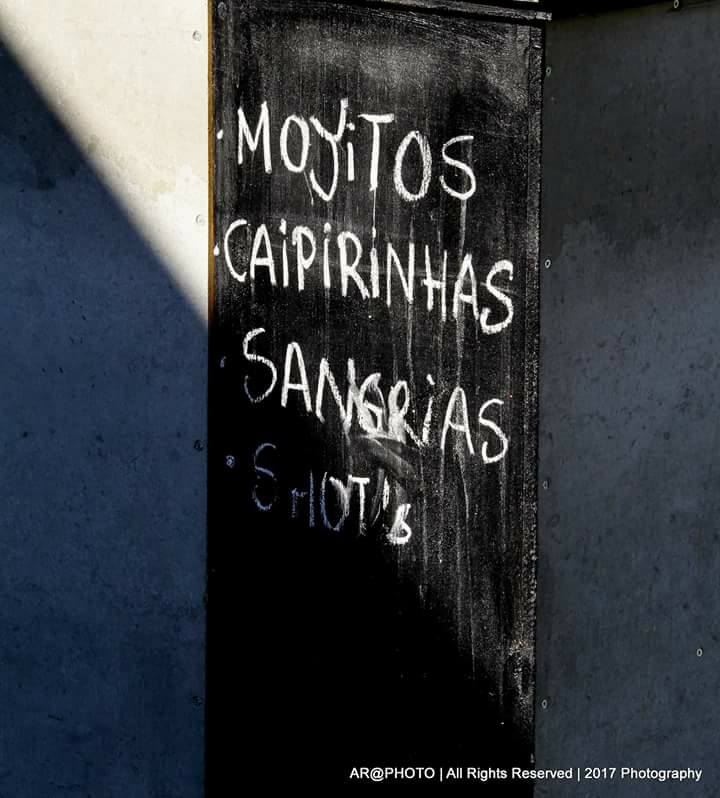 · MOJiTOS
· CAiPiRiNHAS
· SANGRiAS
· SHOT's
AR@PHOTO | All Rights Reserved | 2017 Photography